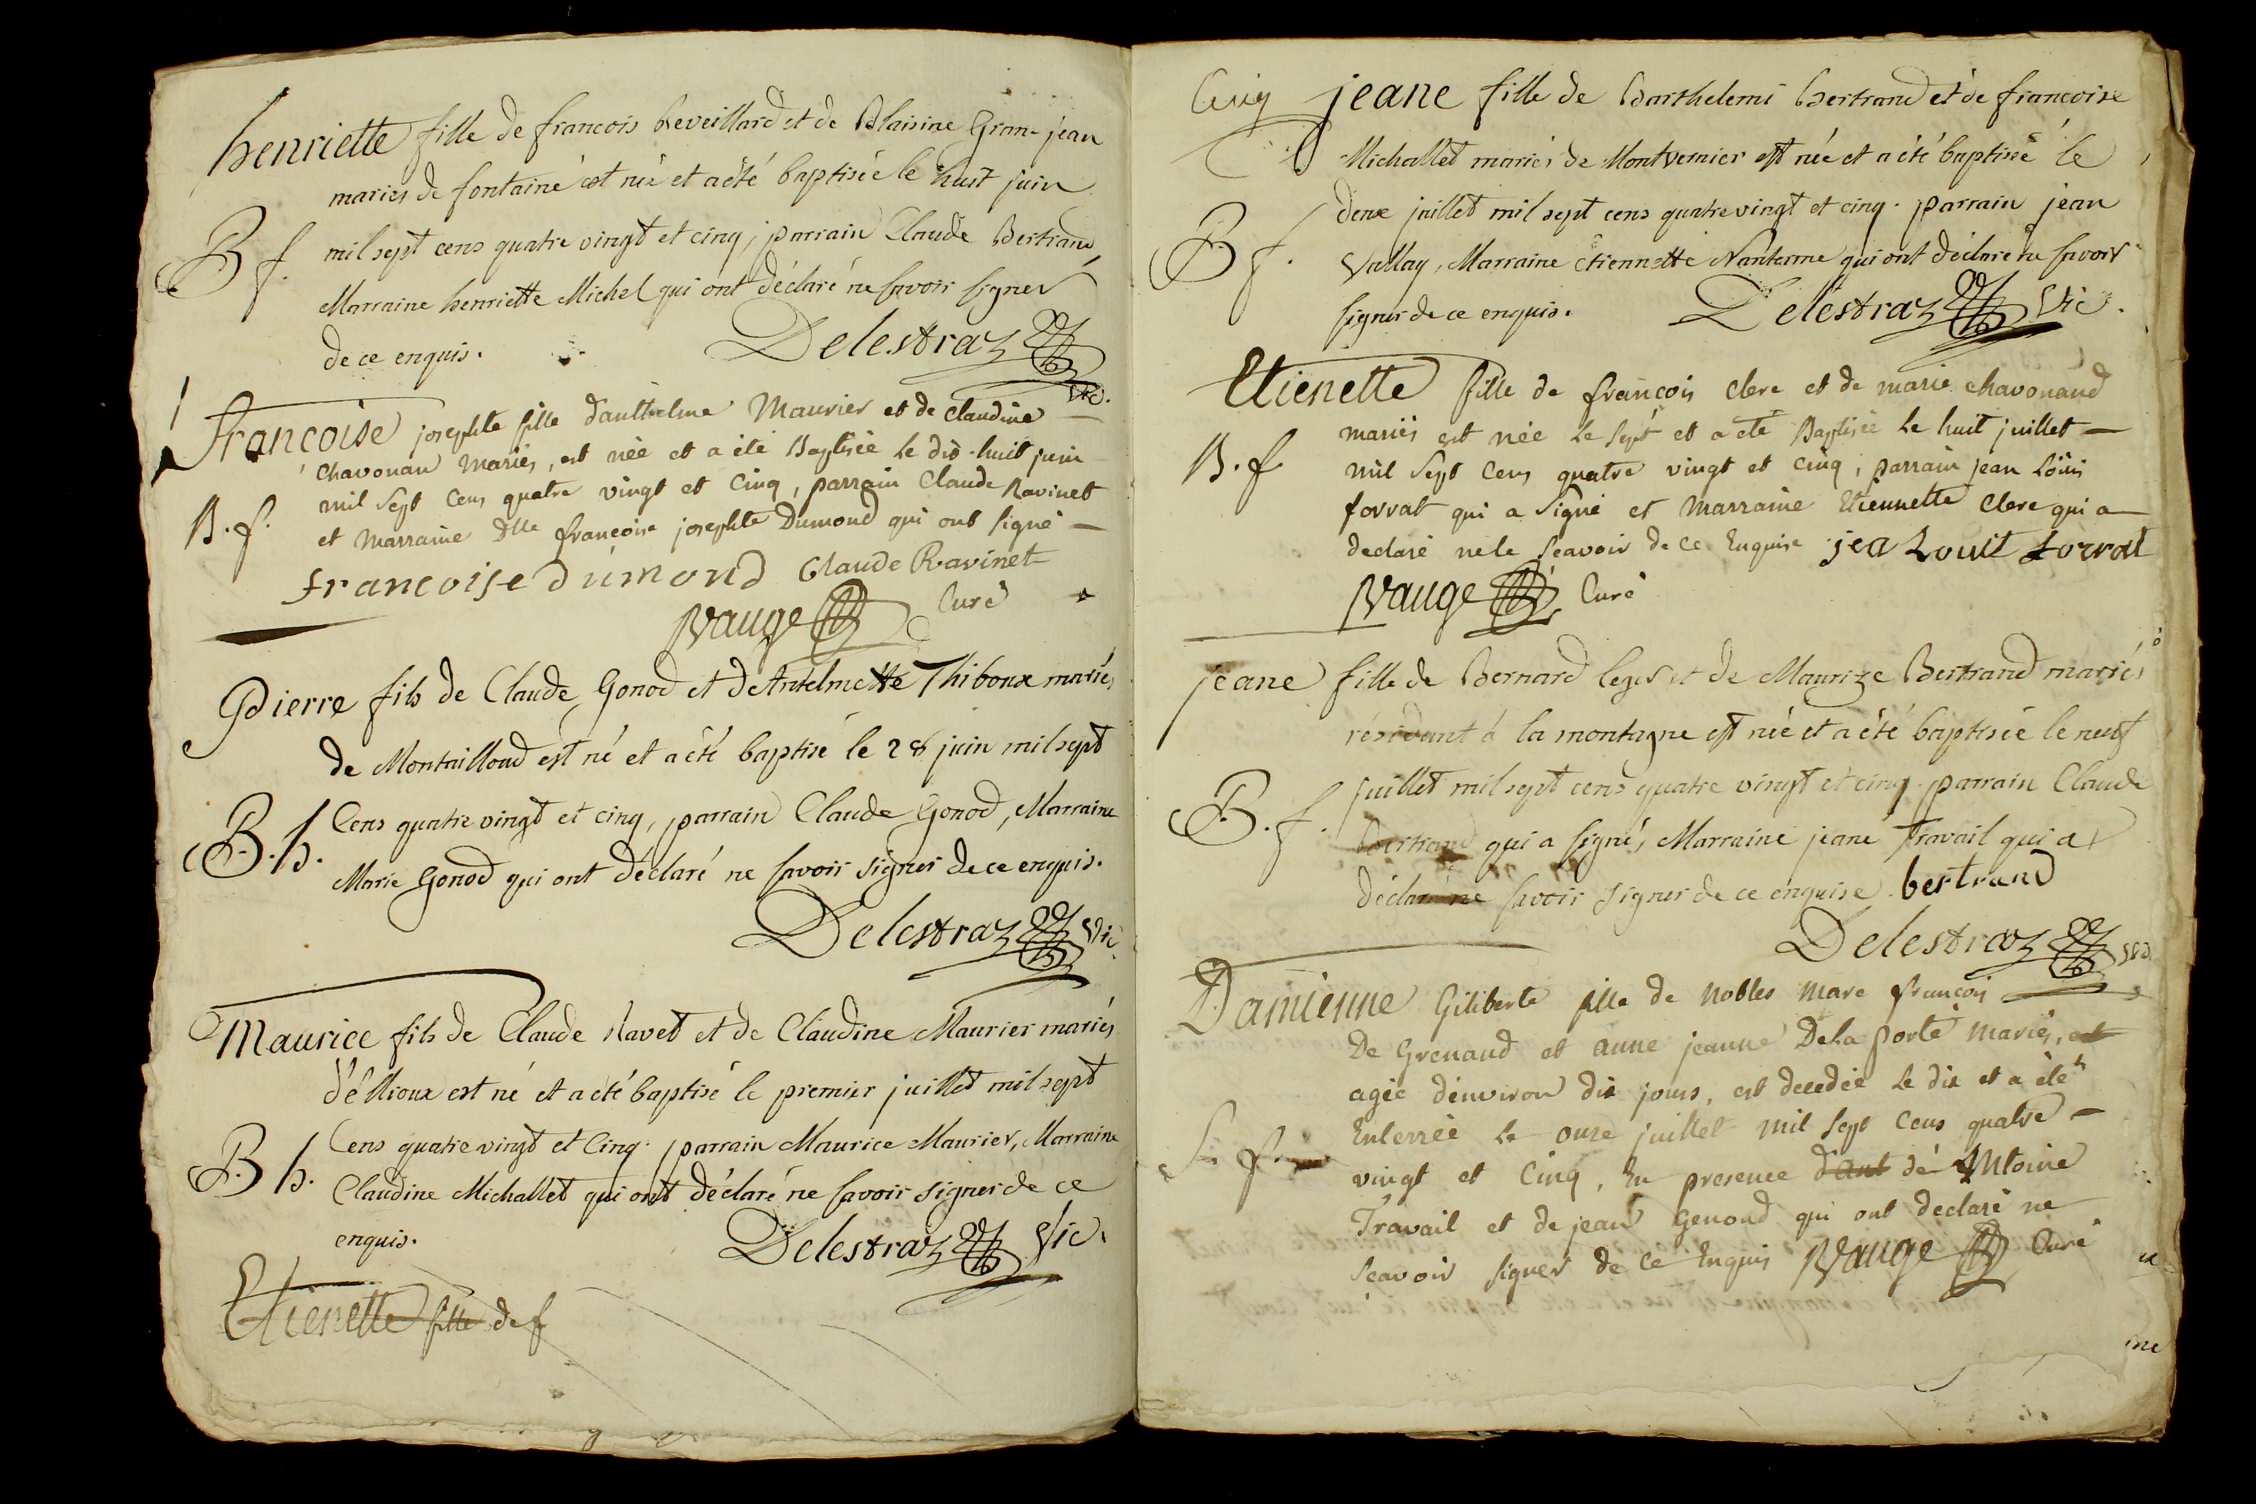 henriette fille de francois Leveillard et de Blaisine Gran-jean
maries de fontaine est née et a été baptisée le huit juin
B f. mil sept cens quatre vingt et cinq, parrain Claude Bertrand,
Marraine henriette Michel qui ont déclaré ne savoir signer
de ce enquis. Delestraz vic.
Francoise josephte fille d'anthelme Maurier et de claudine
chavonan mariés, est née et a été Baptisée le dix-huit juin
mil sept cens quatre vingt et cinq, parrain Claude Ravinet
B. f. et marraine dlle francoise josephte Dumond qui ont signé
francoise dumond Claude Ravinet
Vauge Curé
Pierre fils de Claude Gonod et de Antelmette Thiboux mariés
de Montailloud est né et a été baptisé le 28 juin mil sept
B. h. Cens quatre vingt et cinq, parrain Claude Gonod, Marraine
Marie Gonod qui ont déclaré ne savoir signer de ce enquis.
Delestraz Vic.
Maurice fils de Claude Navet et de Claudine Maurier mariés
d'élioux est né et a été baptisé le premier juillet mil sept
B h. Cens quatre vingt et Cinq. parrain Maurice Maurier, Marraine
Claudine Michallet qui ont déclaré ne savoir signer de ce
enquis. Delestraz Vic.
Etienette fille de f
Cinq jeane fille de Barthelemi Bertrand et de francoise
Michallet mariés de Montvernier est née et a été baptisée le
deux juillet mil sept cens quatre vingt et cinq. parrain jean
B f. Vallay, Marraine étiennette Nanterme qui ont déclaré ne savoir
signer de ce enquis. Delestraz Vic.
Etienette fille de francois clerc et de marie chavonand
mariés est née le sept et a été Baptisée le huit juillet
B. f. mil sept cens quatre vingt et cinq, parrain jean Loüis
forrat qui a signé et marraine Etiennette clerc qui a
declaré ne le sçavoir de ce enquise jea Louit forrat
Vauge Curé
jeane fille de Bernard leger et de Maurize Bertrand mariés
résidant à la montagne est née et a été baptisée le neuf
juillet mil sept cens quatre vingt et cinq parrain Claude
B. f. Bertrand qui a signé, Marraine jeane Travail qui a
déclaré ne savoir signer de ce enquise. bertrand
Delestraz vic.
Damienne Giliberte fille de nobles marc francois
De Grenaud et anne jeanne De la porte mariés, est
agée d'environ dix jours, est decedée le dix et a été
Enterrée le onze juillet mil sept cens quatre
S. f. vingt et cinq, En presence d'ant dé Antoine
Travail et de jean Genoud qui ont declaré ne
sçavoir signer de ce Enquis Vauge Curé